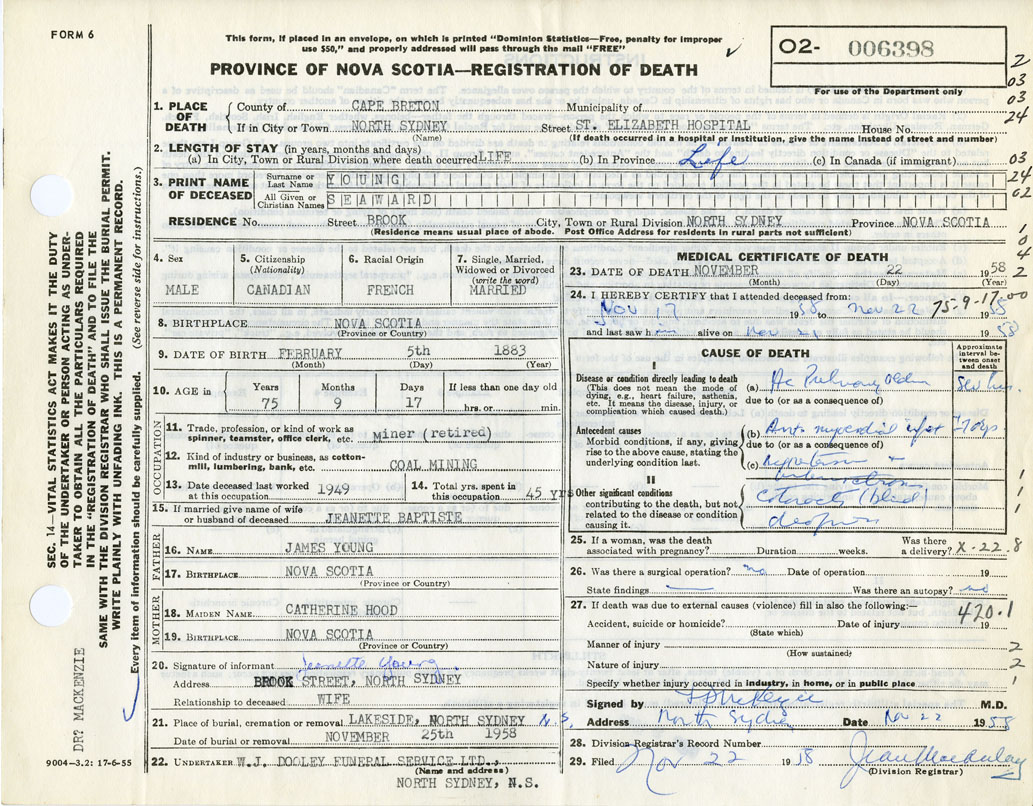 FORM 6
This form, if placed in an envelope, on which is printed "Dominion Statistics—Free, penalty for improper
use $50," and properly addressed will pass through the mail "FREE"
O2- 006398
For use of the Department only
PROVINCE OF NOVA SCOTIA—REGISTRATION OF DEATH
2
03
03
24
03
24
02
1
0
4
2
1. PLACE OF DEATH
County of CAPE BRETON Municipality of
If in City or Town NORTH SYDNEY Street ST. ELIZABETH HOSPITAL House No.
(Name) (If death occurred in a hospital or institution, give the name instead of street and number)
2. LENGTH OF STAY (in years, months and days)
(a) In City, Town or Rural Division where death occurred LIFE (b) In Province Life (c) In Canada (if immigrant)
3. PRINT NAME OF DECEASED
Surname or Last Name YOUNG
All Given or Christian Names SEAWARD
RESIDENCE No. Street BROOK City, Town or Rural Division NORTH SYDNEY Province NOVA SCOTIA
(Residence means usual place of abode. Post Office Address for residents in rural parts not sufficient)
4. Sex
MALE
5. Citizenship
(Nationality)
CANADIAN
6. Racial Origin
FRENCH
7. Single, Married,
Widowed or Divorced
(write the word)
MARRIED
8. BIRTHPLACE NOVA SCOTIA
(Province or Country)
9. DATE OF BIRTH FEBRUARY 5th 1883
(Month) (Day) (Year)
10. AGE in
Years Months Days If less than one day old
75 9 17 hrs. or min.
OCCUPATION
11. Trade, profession, or kind of work as
spinner, teamster, office clerk, etc. Miner (retired)
12. Kind of industry or business, as cotton-
mill, lumbering, bank, etc. COAL MINING
13. Date deceased last worked
at this occupation 1949
14. Total yrs. spent in
this occupation 45 yrs
15. If married give name of wife
or husband of deceased JEANETTE BAPTISTE
FATHER
16. NAME JAMES YOUNG
17. BIRTHPLACE NOVA SCOTIA
(Province or Country)
MOTHER
18. MAIDEN NAME CATHERINE HOOD
19. BIRTHPLACE NOVA SCOTIA
(Province or Country)
20. Signature of informant Jeanette Young
Address BROOK STREET, NORTH SYDNEY
Relationship to deceased WIFE
21. Place of burial, cremation or removal LAKESIDE, NORTH SYDNEY N.S.
Date of burial or removal NOVEMBER 25th 1958
22. UNDERTAKER W.J. DOOLEY FUNERAL SERVICE LTD.,
(Name and address)
NORTH SYDNEY, N.S.
MEDICAL CERTIFICATE OF DEATH
23. DATE OF DEATH NOVEMBER 22 1958
(Month) (Day) (Year)
24. I HEREBY CERTIFY that I attended deceased from:
75-9-17
Nov 17 1958 to Nov 22 1958
and last saw him alive on Nov 21 1958
CAUSE OF DEATH
Approximate
interval be-
tween onset
and death
I
Disease or condition directly leading to death
(This does not mean the mode of
dying, e.g., heart failure, asthenia,
etc. It means the disease, injury, or
complication which caused death.)
(a) Ac
due to (or as a consequence of)
Antecedent causes
Morbid conditions, if any, giving
rise to the above cause, stating the
underlying condition last.
(b) myocardial
due to (or as a consequence of)
(c)
II
Other significant conditions
contributing to the death, but not
related to the disease or condition
causing it.
Cataracts (blind)
1
1
1
25. If a woman, was the death
associated with pregnancy? Duration weeks. Was there
a delivery? X-22.8
26. Was there a surgical operation? no Date of operation 19
State findings — Was there an autopsy? no
27. If death was due to external causes (violence) fill in also the following:—
420.1
Accident, suicide or homicide? Date of injury 19
(State which)
Manner of injury 2
(How sustained)
Nature of injury 2
Specify whether injury occurred in industry, in home, or in public place 1
Signed by M.D.
Address North Sydney Date Nov 22 1958
28. Division Registrar's Record Number
29. Filed Nov 22 1958 Jean MacAulay
(Division Registrar)
SEC. 14—VITAL STATISTICS ACT MAKES IT THE DUTY
OF THE UNDERTAKER OR PERSON ACTING AS UNDER-
TAKER TO OBTAIN ALL THE PARTICULARS REQUIRED
IN THE "REGISTRATION OF DEATH" AND TO FILE THE
SAME WITH THE DIVISION REGISTRAR WHO SHALL ISSUE THE BURIAL PERMIT.
WRITE PLAINLY WITH UNFADING INK. THIS IS A PERMANENT RECORD.
Every item of information should be carefully supplied. (See reverse side for instructions.)
DR? MACKENZIE
9004—3.2: 17-6-55